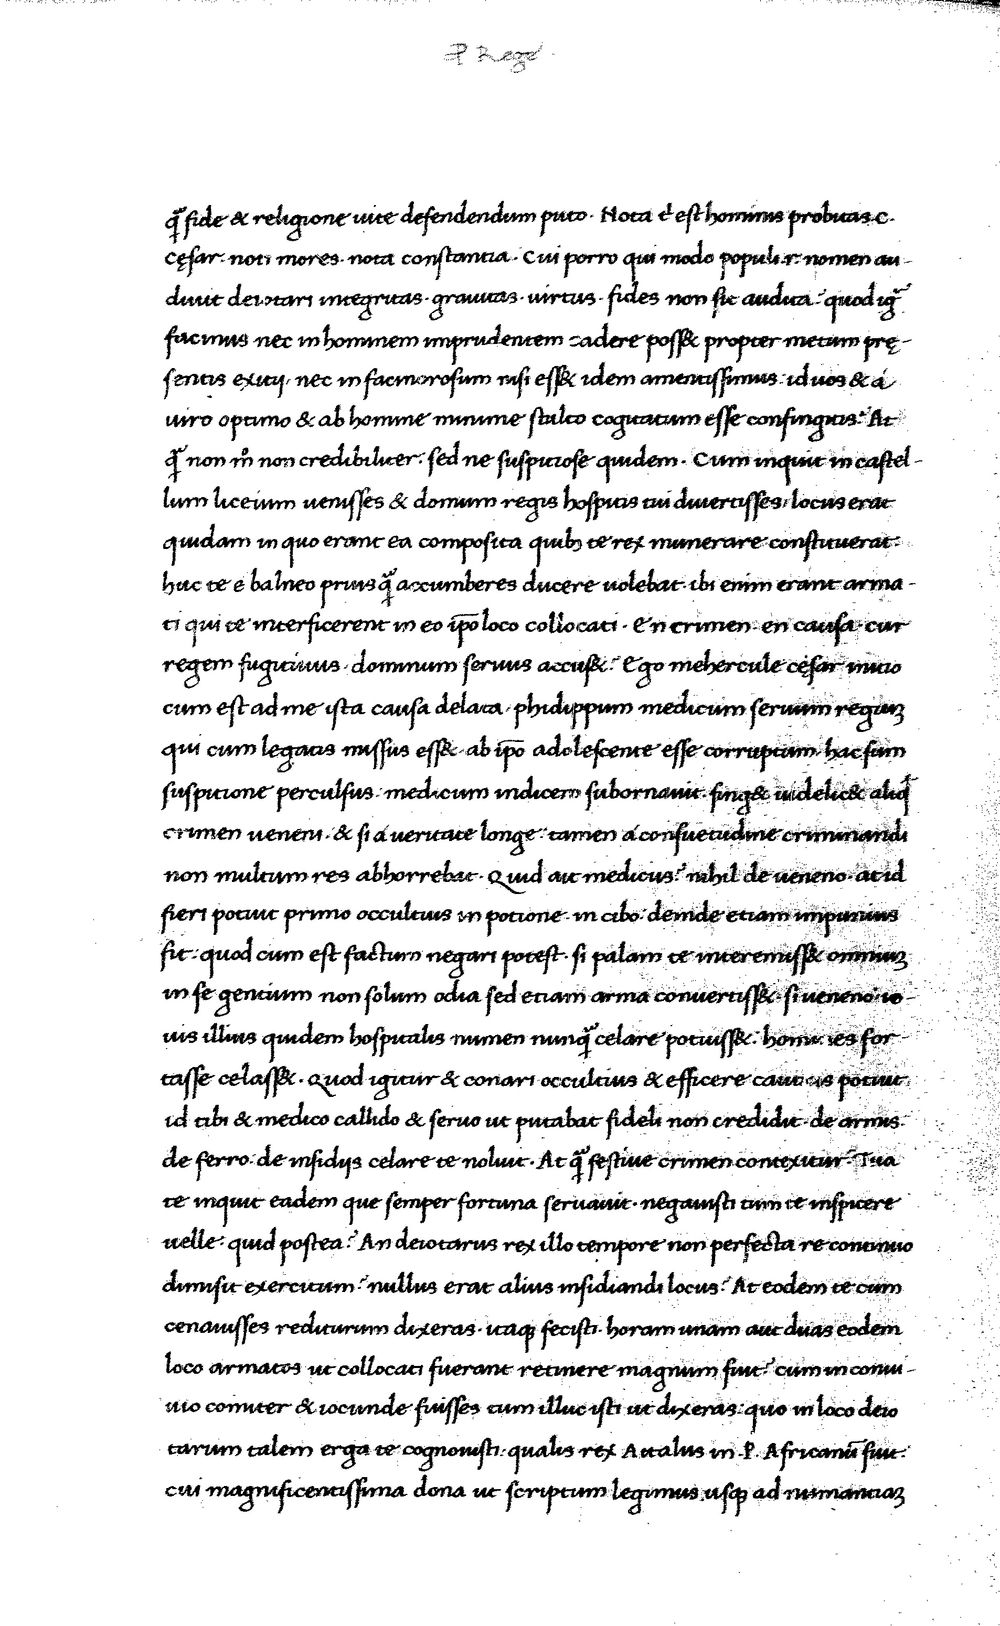 P Rege
qᷓ fide & religione uite defendendum puto · Nota t̄ est hominis probitas · C ·
cęsar · noti mores · nota constantia · Cui porro qui modo populi · r · nomen au-
diuit deiotari integritas · grauitas · uirtus · fides non sit audita? quod igᷓ
facinus nec in hominem imprudentem cadere poss& propter metum prę-
sentis exitij · nec in facinorosum nisi ess& idem amentissimus · id uos & á
uiro optimo & ab homine minime stulto cogitatum esse confingitis? At
qᷓ non m̊ non credibiliter · sed ne suspitiose quidem · Cum inquit in castel-
lum liceium uenisses & domum regis hospitis tui diuertisses · locus erat
quidam in quo erant ea composita quibꝫ te rex munerare constituerat ·
huc te e balneo prius qᷓ accumberes ducere uolebat · ibi enim erant arma-
ti qui te interficerent in eo ip̄o loco collocati · En crimen · en causa · cur
regem fugitiuus · dominum seruus accus&? Ego mehercule cęsar initio
cum est ad me ista causa delata · phidippum medicum seruum regiuꝫ
qui cum legatis missus ess& · ab ip̄o adolescente esse corruptum · hac sum
suspitione perculsus · medicum indicem subornauit · fing& uidelic& aliqd̄
crimen ueneni · & si á ueritate longe · tamen á consuetudine criminandi
non multum res abhorrebat · Quid ait medicus? nihil de ueneno · at id
fieri potuit primo occultius in potione · in cibo · deinde etiam impunius
fit · quod cum est factum negari potest · si palam te interemiss& omniuꝫ
in se gentium non solum odia sed etiam arma conuertiss& · si ueneno · io-
uis illius quidem hospitalis numen nunqᷓ celare potuiss& · homines for-
tasse celass& · Quod igitur & conari occultius & efficere cautius potuit
id tibi & medico callido & seruo ut putabat fideli non credidit · de armis ·
de ferro · de insidijs celare te noluit · At qᷓ festiue crimen contexitur? Tua
te inquit eadem que semper fortuna seruauit · negauisti tum te inspicere
uelle · quid postea? An deiotarus rex illo tempore non perfecta re continuo
dimisit exercitum? nullus erat alius insidiandi locus? At eodem te cum
cenauisses rediturum dixeras · itaqꝫ fecisti · horam unam aut duas eodem
loco armatos ut collocati fuerant retinere magnum fuit? cum in conui-
uio comiter & iocunde fuisses tum illuc isti ut dixeras · quo in loco deio
tarum talem erga te cognouisti · qualis rex Attalus in · P · Africanū fuit ·
cui magnificentissima dona ut scriptum legimus usqꝫ ad numantiaꝫ